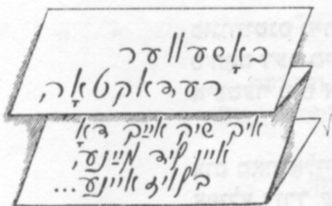 כאָשעווער
רעדאקטאָר,
איכ שיק אײַכ דאָ
איין ליד מײַנע,
בלויז איינע...